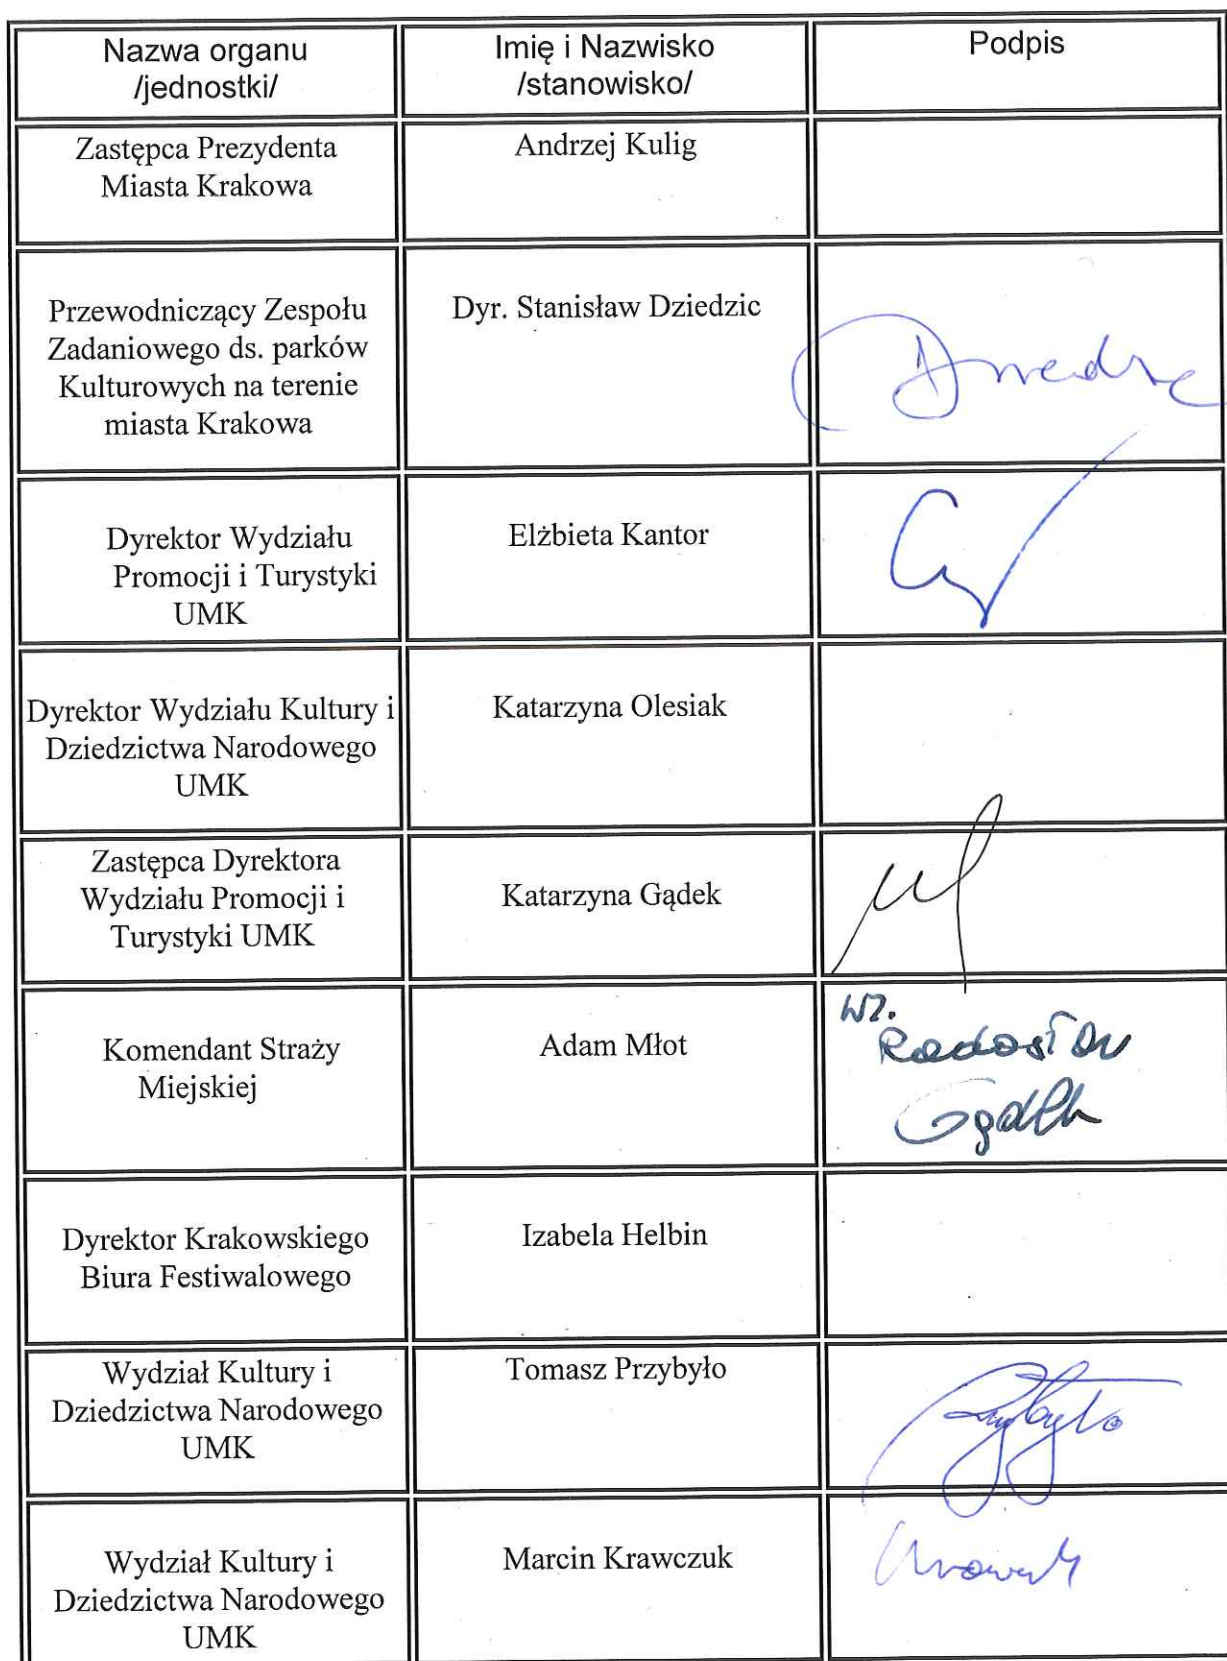 Nazwa organu
/jednostki/
Imię i Nazwisko
/stanowisko/
Podpis
Zastępca Prezydenta
Miasta Krakowa
Andrzej Kulig
Przewodniczący Zespołu
Zadaniowego ds. parków
Kulturowych na terenie
miasta Krakowa
Dyr. Stanisław Dziedzic
Dyrektor Wydziału
Promocji i Turystyki
UMK
Elżbieta Kantor
Dyrektor Wydziału Kultury i
Dziedzictwa Narodowego
UMK
Katarzyna Olesiak
Zastępca Dyrektora
Wydziału Promocji i
Turystyki UMK
Katarzyna Gądek
Komendant Straży
Miejskiej
Adam Młot
wz.
Radosław
Dyrektor Krakowskiego
Biura Festiwalowego
Izabela Helbin
Wydział Kultury i
Dziedzictwa Narodowego
UMK
Tomasz Przybyło
Przybyło
Wydział Kultury i
Dziedzictwa Narodowego
UMK
Marcin Krawczuk